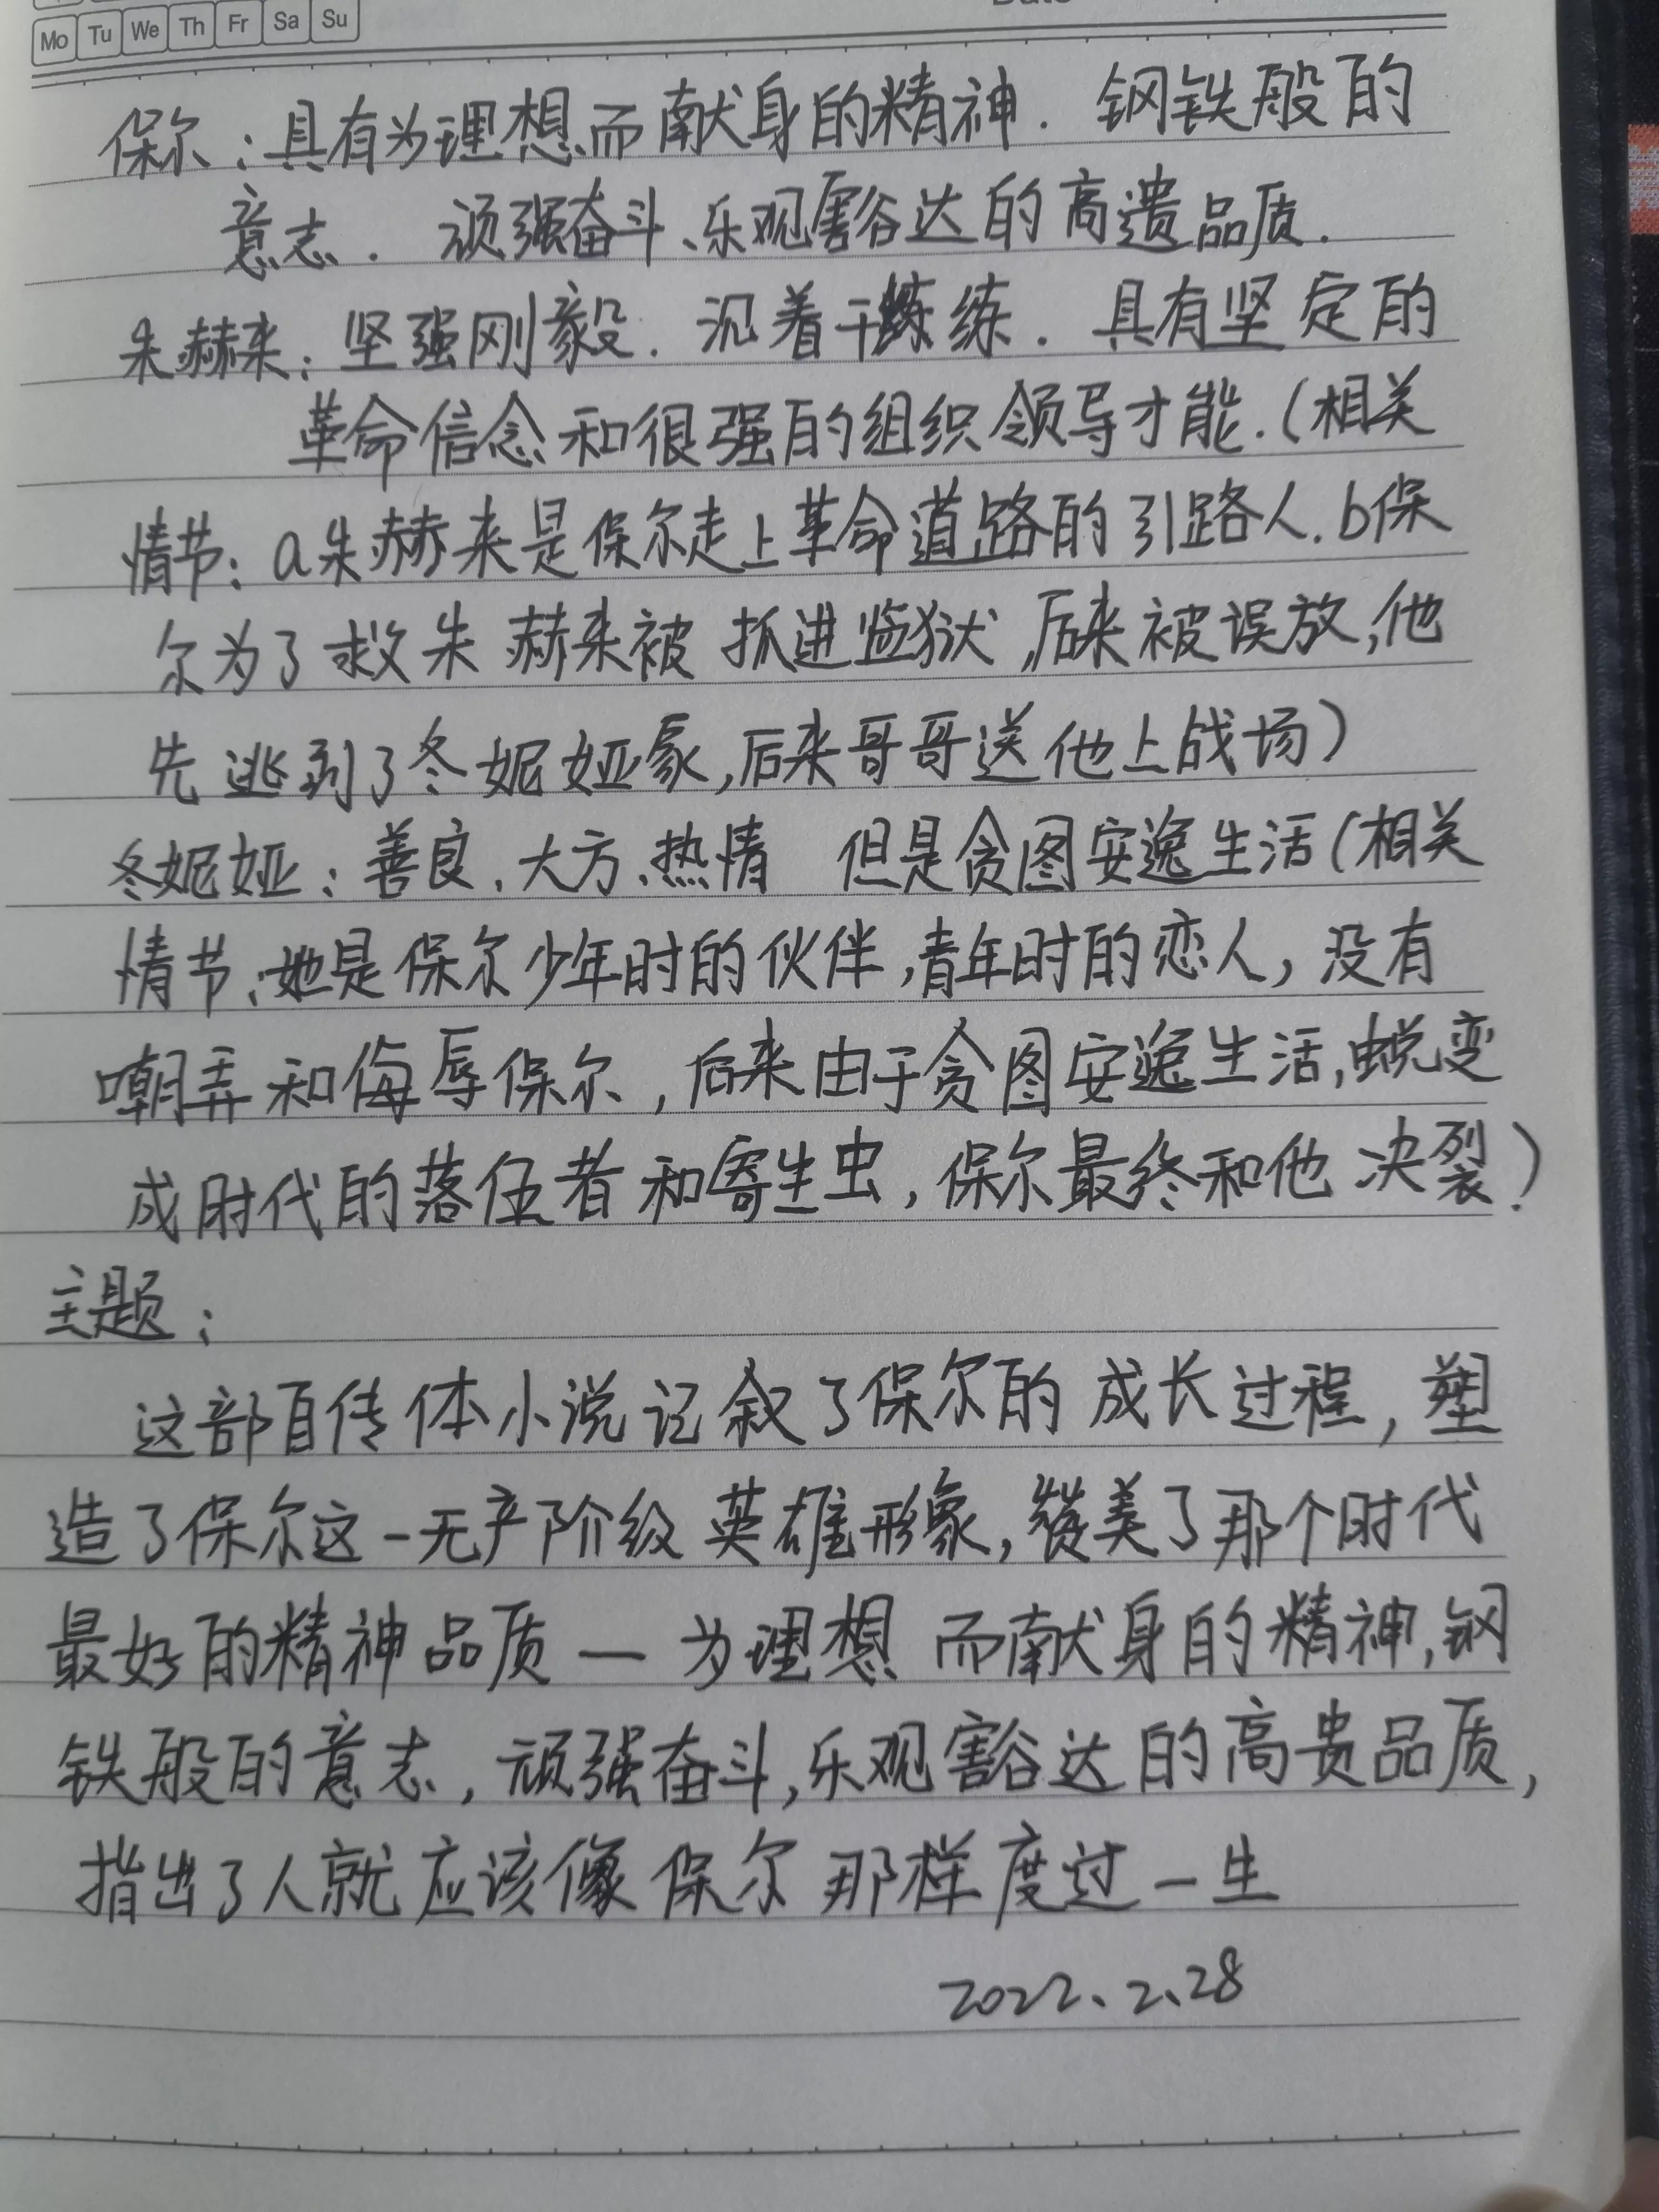 Mo Tu We Th Fr Sa Su
保尔：具有为理想而献身的精神．钢铁般的
意志．顽强奋斗、乐观豁达的高遗品质．
朱赫来：坚强刚毅．沉着干练．具有坚定的
革命信念和很强的组织领导才能.(相关
情节：a朱赫来是保尔走上革命道路的引路人.b保
尔为了救朱赫来被抓进监狱,后来被误放,他
先逃到了冬妮娅家,后来哥哥送他上战场)
冬妮娅：善良、大方、热情 但是贪图安逸生活(相关
情节：她是保尔少年时的伙伴,青年时的恋人,没有
嘲弄和侮辱保尔,后来由于贪图安逸生活,蜕变
成时代的落伍者和寄生虫,保尔最终和他决裂)．
主题：
这部自传体小说记叙了保尔的成长过程,塑
造了保尔这一无产阶级英雄形象,赞美了那个时代
最好的精神品质—为理想而献身的精神,钢
铁般的意志,顽强奋斗,乐观豁达的高贵品质,
指出了人就应该像保尔那样度过一生
2022、2、28